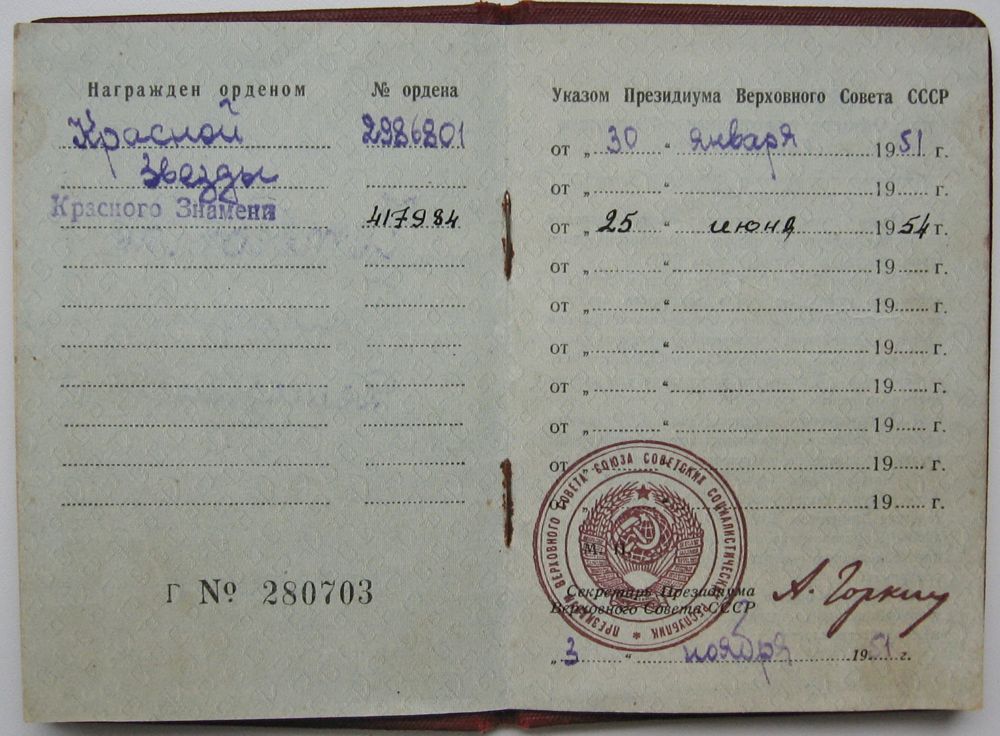 Награжден орденом № ордена
Красной 2986801
Звезды
Красного Знамени 417984
Г № 280703
Указом Президиума Верховного Совета СССР
от „ 30 “ января 1951 г.
от „ “ 19 г.
от „ 25 “ июня 1954 г.
от „ “ 19 г.
от „ “ 19 г.
от „ “ 19 г.
от „ “ 19 г.
от „ “ 19 г.
от „ “ 19 г.
от „ “ 19 г.
ПРЕЗИДИУМ ВЕРХОВНОГО СОВЕТА СОЮЗА СОВЕТСКИХ СОЦИАЛИСТИЧЕСКИХ РЕСПУБЛИК
М. П.
Секретарь Президиума
Верховного Совета СССР
А. Горкин
„ 3 “ ноября 1951 г.